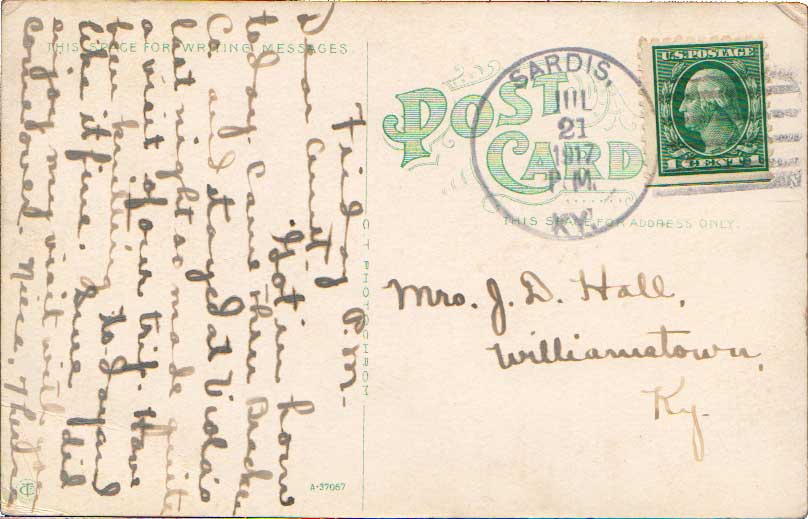 THIS SPACE FOR WRITING MESSAGES
POST CARD
THIS SPACE FOR ADDRESS ONLY.
SARDIS,
JUL
21
1917
P.M.
KY.
U.S. POSTAGE
1 CENT 1
Mrs. J. D. Hall,
Williamstown,
Ky.
Friday P.M.
Dear Aunt:
Got in home
today. Came thru Bracken
Co. and stayed at Viola's
last night so made quite
a visit of our trip. Have
been knitting to-day and
like it fine. Sure did
enjoy my visit with you
Come over. Niece,
C T PHOTOCHROM
A-37067